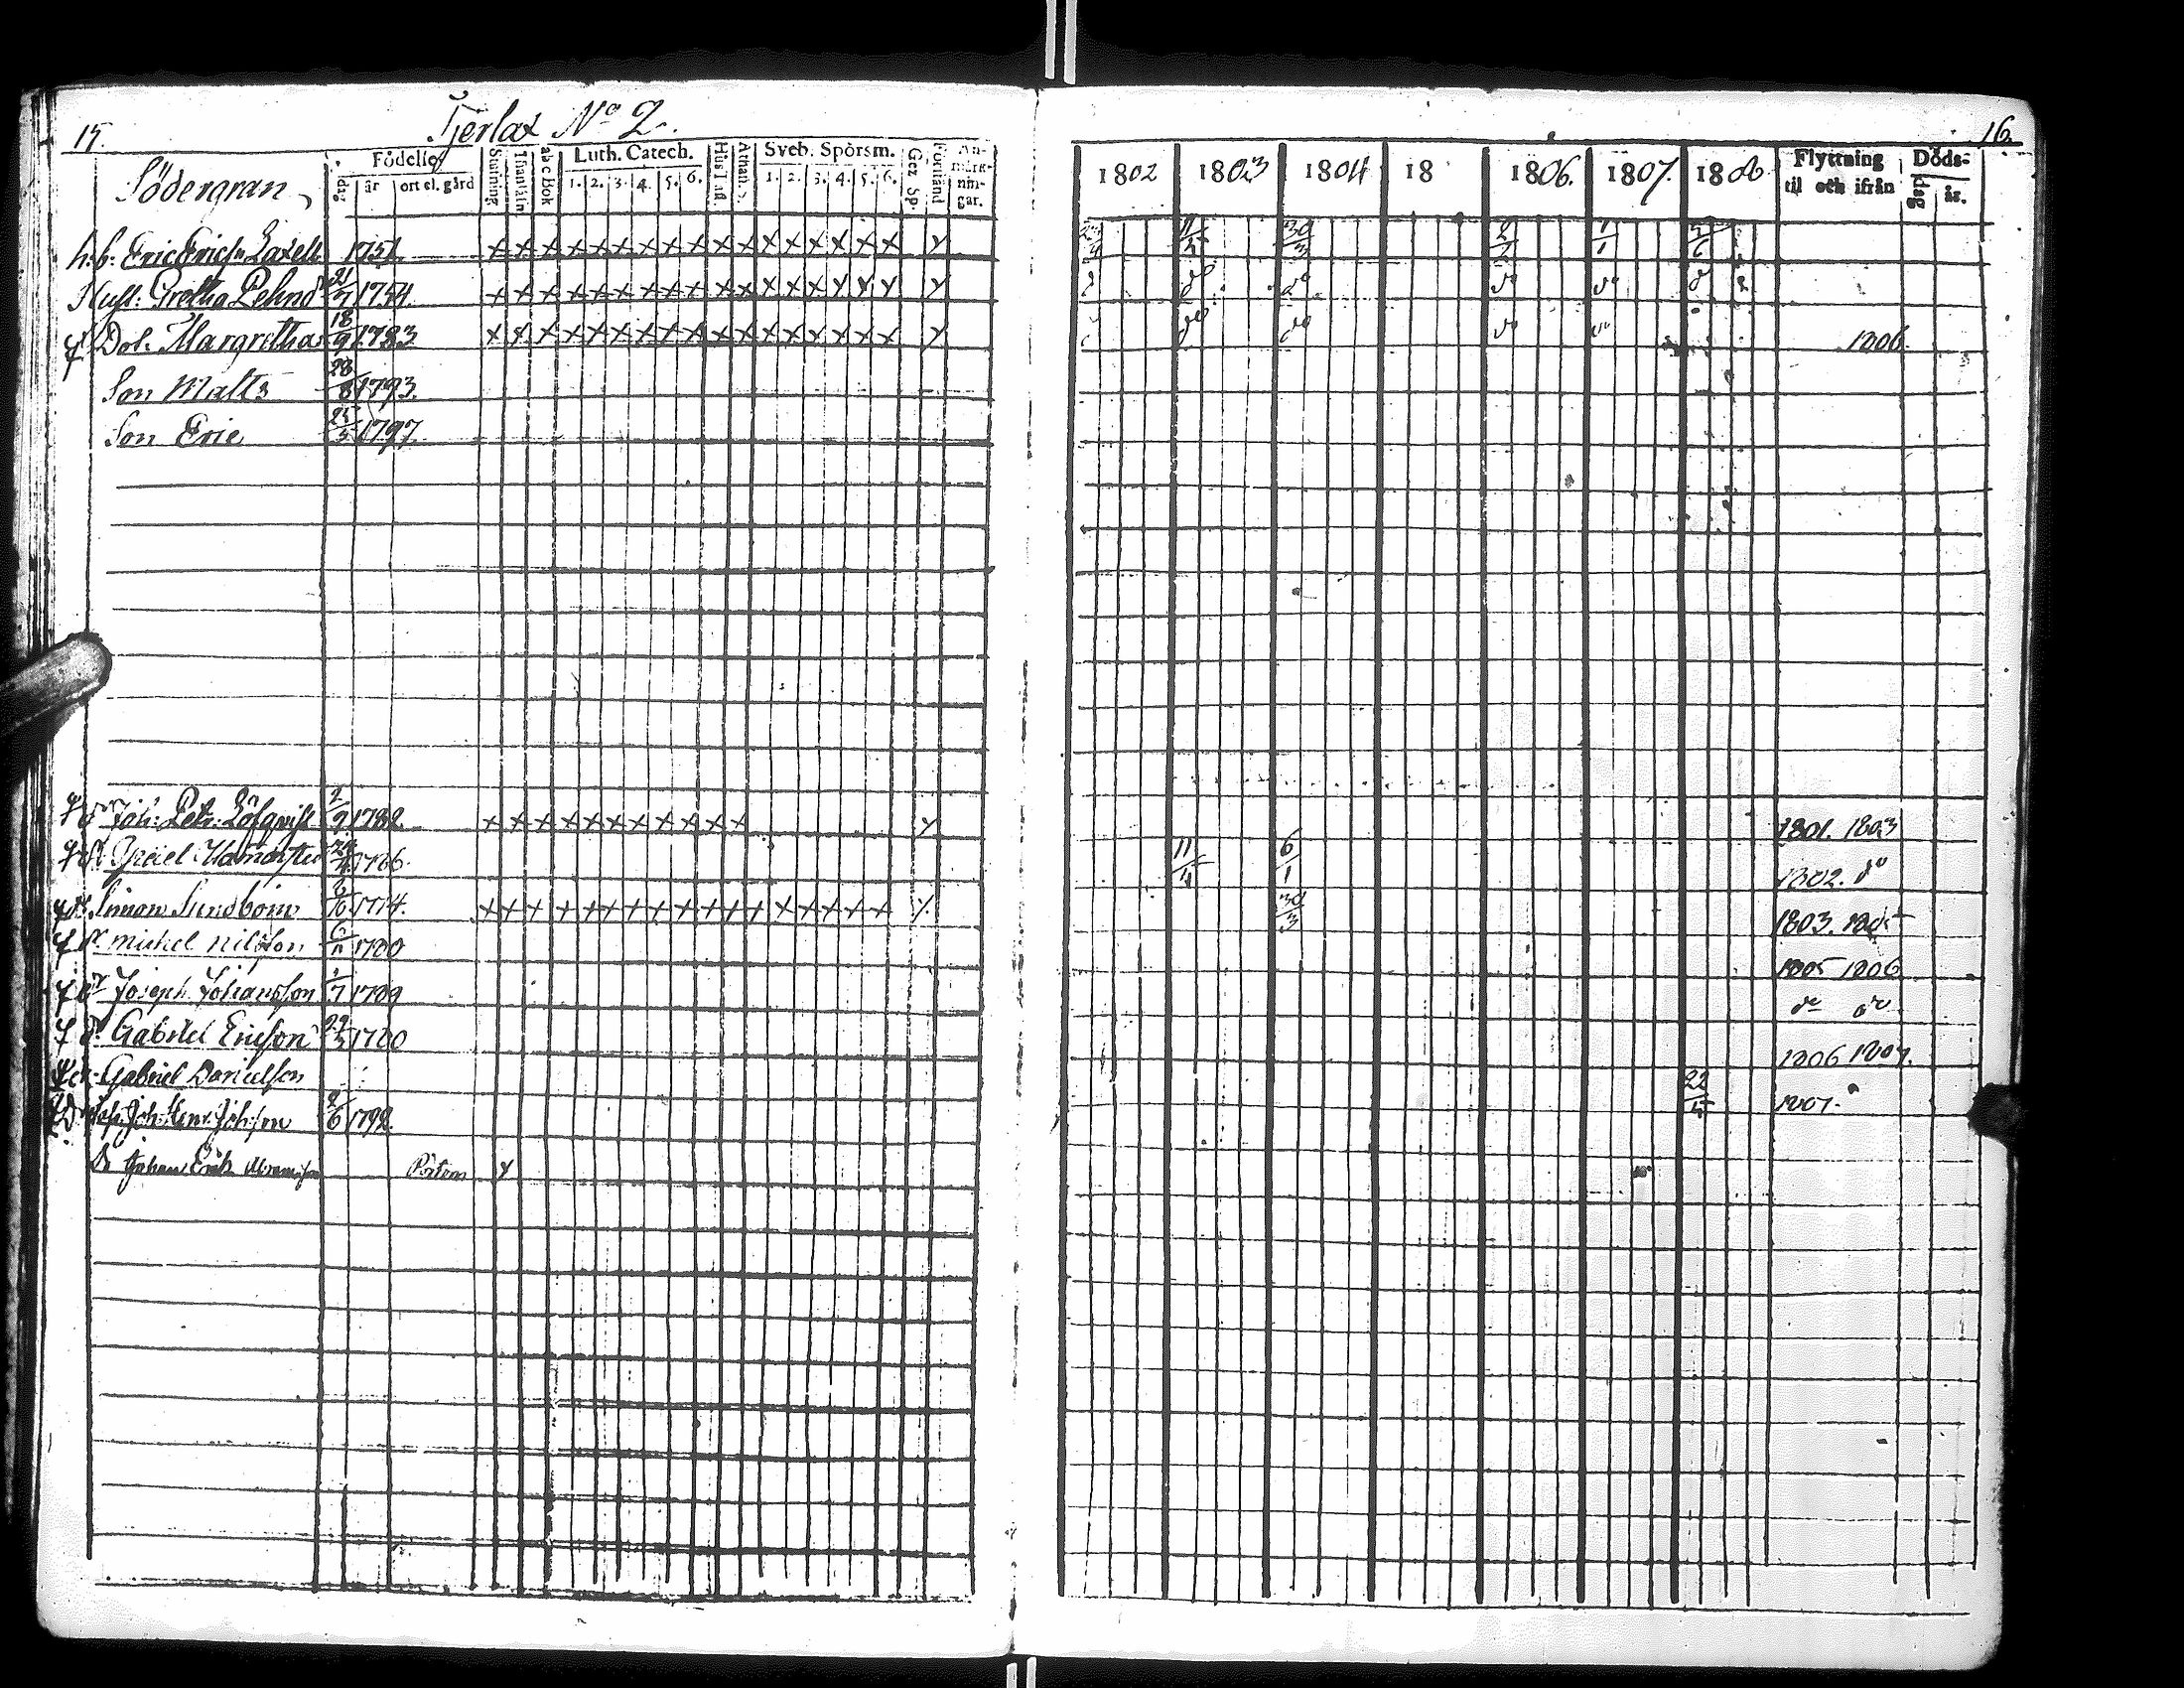 15.
Tjerlax No 2.
Södergran
Födelse
dag
år
ort el. gård
Stafning
Innanläsn
ab c Bok
Luth. Catech.
1. 2. 3. 4. 5. 6.
Hus Taf.
Athan. S.
Sveb. Spörsm.
1. 2. 3. 4. 5. 6.
Gez. Sp.
Förstånd
An-
märk-
nin-
gar.
h. b. Eric Erichs. Laxell 1751 x x x x x x x x x x x x x x x x x y
Hust. Gretha Pehrsd 21/7 1754. x x x x x x x x x x x x x y y y y y
Dot. Margretha 18/9 1783 x x x x x x x x x x x x x x x x x y
Son Matts 28/8 1793.
Son Eric 25/5 1797.
Joh: Petr. Löfqvist 2/9 1782. x x x x x x x x x x x y
1786.
Simon Sundbom 1774. x x x x x x x x x x x x x x x x y
Michel Nilsson 6/11 1780
Joseph Johansson 1/7 1789
Gabriel Ericson 29/3 1780
Gabriel Danielson
2/6 1792.
Johan Erik Portom y
16.
1802 1803 1804 18 1806. 1807. 1808
Flyttning
til och ifrån
Döds-
dag
år.
11/5 30/3 2/2 1/1 5/6
do do do do d
do do do do 1806.
1801. 1803
11/4 6/1 1802. do
30/3 1803. 1805
1805 1806
do do
1806 1807.
22/5 1807.